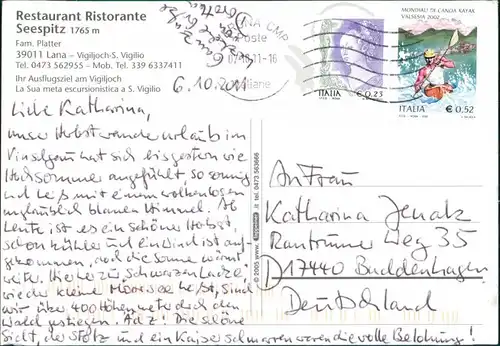 Restaurant Ristorante
Seespitz 1765 m
Fam. Platter
39011 Lana – Vigiljoch-S. Vigilio
Tel. 0473 562955 – Mob. Tel. 339 6337411
Ihr Ausflugziel am Vigiljoch
La Sua meta escursionistica a S. Vigilio
6.10.2011
Liebe Katharina,
unser Herbstwanderurlaub im
Vinschgau hat sich bis gestern wie
Hochsommer angefühlt, so sonnig
und heiß mit einem wolkenlosen
unglaublich blauen Himmel. Ab
heute ist es ein schöner Herbst,
schon kühler und ein Wind ist auf-
gekommen, und die Sonne wärmt
weiter. Hierher zu "Schwarzen Lacke"
wie der kleine Moorsee heißt, sind
wir über 400 Höhenmeter durch den
Wald gestiegen. Die schöne
Sicht, der Stolz und ein Kaiserschmarren waren die volle Belohnung!
Ganz
herzliche Grüße
von
Dorothea
CMP
Poste
Italiane
ITALIA € 0,23
MONDIALI DI CANOA KAYAK
VALSESIA 2002
ITALIA € 0,52
© 2005 www.tappeiner.it tel. 0473 563666
An Frau
Katharina Jenatz
Rantrumer Weg 35
17440 Buddenhagen
Deutschland